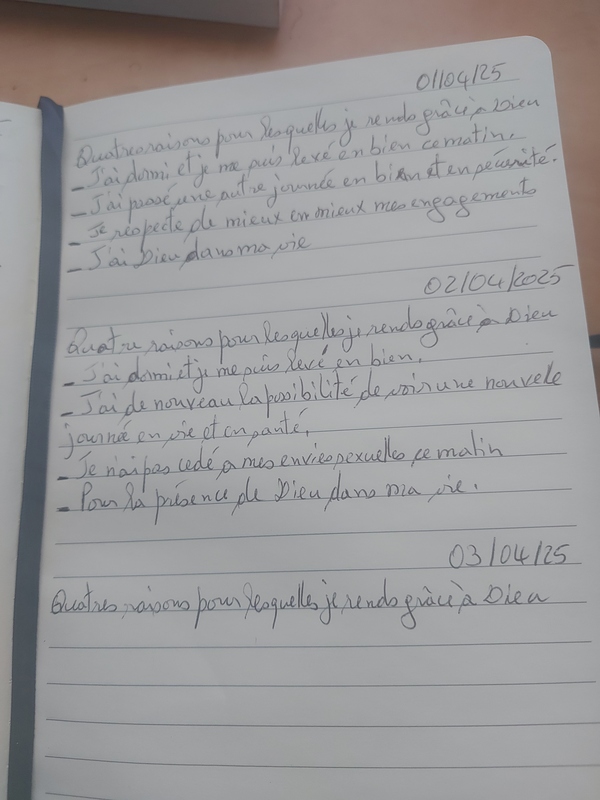 01/04/25
Quatres raisons pour lesquelles je rends grâce à Dieu
- J'ai dormi et je me suis levé en bien ce matin.
- J'ai passé une autre journée en bien et en sécurité.
- Je respecte de mieux en mieux mes engagements
- J'ai Dieu dans ma vie
02/04/2025
Quatre raisons pour lesquelles je rends grâce à Dieu
- J'ai dormi et je me suis levé en bien.
- J'ai de nouveau la possibilité de voir une nouvelle
journée en vie et en santé.
- Je n'ai pas cédé à mes envies sexuelles ce matin
- Pour la présence de Dieu dans ma vie.
03/04/25
Quatres raisons pour lesquelles je rends grâce à Dieu